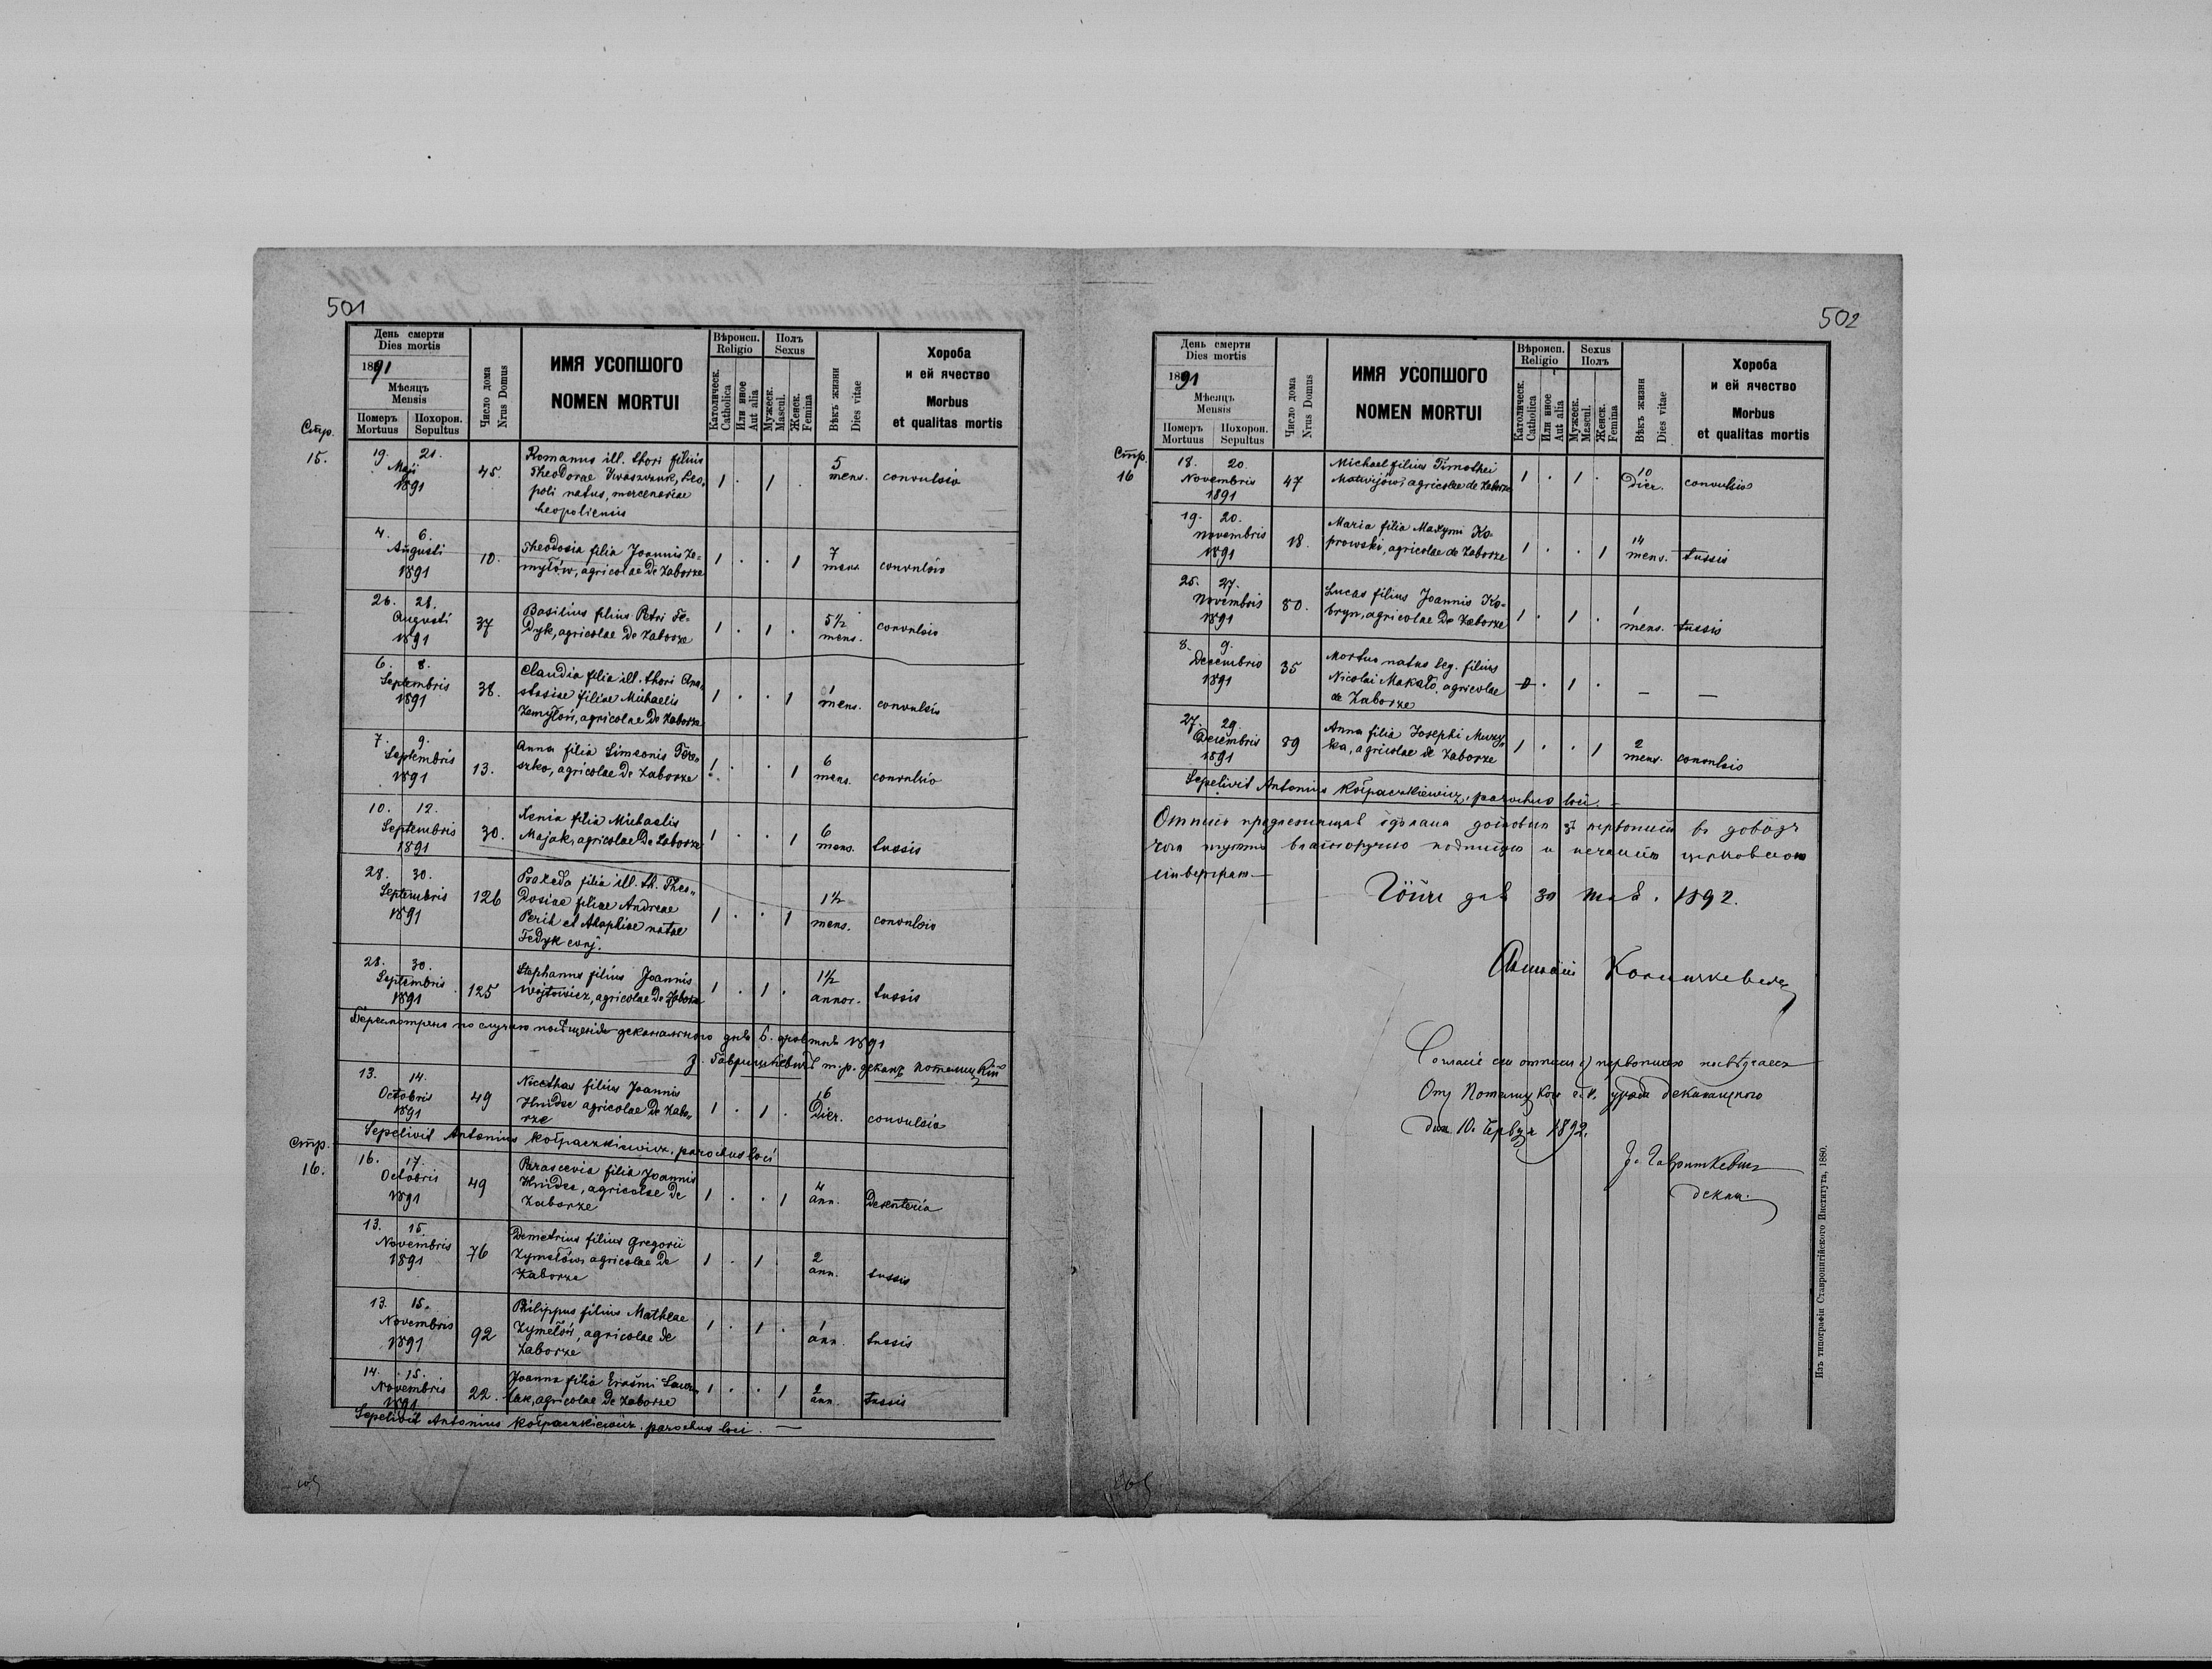 501
День смерти
Dies mortis
1891
Мѣсяцъ
Mensis
Померъ
Mortuus
Похорон.
Sepultus
Число дома
Nrus Domus
ИМЯ УСОПШОГО
NOMEN MORTUI
Вѣроисп.
Religio
Католическ.
Catholica
Или иное
Aut alia
Полъ
Sexus
Мужеск.
Mascul.
Женск.
Femina
Вѣкъ жизни
Dies vitae
Хороба
и ей ячество
Morbus
et qualitas mortis
Стр.
15.
19. 21.
Maji
1891
45.
Romanus ill. thori filius
Theodorae Iwaszczuk, Leo-
poli natus, mercenariae
Leopoliensis
1 . 1 .
5
mens.
convulsio
4. 6.
Augusti
1891
10.
Theodosia filia Joannis Ze-
myłów, agricolae de Zaborze
1 . . 1
7
mens.
convulsio
26. 28.
Augusti
1891
37
Basilius filius Petri Fe-
dyk, agricolae de Zaborze
1 . 1 .
5 1/2
mens.
convulsio
6. 8.
Septembris
1891
38.
Claudia filia ill. thori Ana-
stasiae filiae Michaelis
Zemyłów, agricolae de Zaborze
1 . . 1
1
mens.
convulsio
7. 9.
Septembris
1891
13.
Anna filia Simeonis
szko, agricolae de Zaborze
1 . . 1
6
mens.
convulsio
10. 12.
Septembris
1891
30.
Xenia filia Michaelis
Majak, agricolae de Zaborze
1 . . 1
6
mens.
tussis
28. 30.
Septembris
1891
126
Praxeda filia ill. th. Theo-
dosiae filiae Andreae
Perih et Agaphiae natae
Fedyk conj.
1 . . 1
1 1/2
mens.
convulsio
28. 30.
Septembris
1891
125
Stephanus filius Joannis
Wojtowicz, agricolae de Zaborze
1 . 1 .
1 1/2
annor.
tussis
Пересмотрено по случаю посѣщенія деканального дня 6. 1891
т.р. деканъ
13. 14.
Octobris
1891
49
Nicethas filius Joannis
Hnidec agricolae de Zabo-
rze
1 . 1 .
16
dier.
convulsio
Sepelivit Antonius Kołpaczkiewicz, parochus loci
Стр.
16.
16. 17.
Octobris
1891
49
Parascevia filia Joannis
Hnidec, agricolae de
Zaborze
1 . . 1
4
ann.
Desenteria
13. 15.
Novembris
1891
76
Demetrius filius Gregorii
Zymełów, agricolae de
Zaborze
1 . 1
2
ann.
tussis
13. 15.
Novembris
1891
92
Philippus filius Matheae
Zymełów, agricolae de
Zaborze
1 . 1 .
1
ann.
tussis
14. 15.
Novembris
1891
22.
Joanna filia Erasmi
agricolae de Zaborze
1 . . 1
2
ann.
tussis
Sepelivit Antonius Kołpaczkiewicz, parochus loci. —
502
День смерти
Dies mortis
1891
Мѣсяцъ
Mensis
Померъ
Mortuus
Похорон.
Sepultus
Число дома
Nrus Domus
ИМЯ УСОПШОГО
NOMEN MORTUI
Вѣроисп.
Religio
Католическ.
Catholica
Или иное
Aut alia
Sexus
Полъ
Мужеск.
Mascul.
Женск.
Femina
Вѣкъ жизни
Dies vitae
Хороба
и ей ячество
Morbus
et qualitas mortis
Стр.
16
18. 20.
Novembris
1891
47
Michael filius Timothei
Matwijów, agricolae de Zaborze
1 . 1 .
10
dier.
convulsio
19. 20.
Novembris
1891
18.
Maria filia Maxymi Ko-
prowski, agricolae de Zaborze
1 . . 1
14
mens.
tussis
25. 27.
Novembris
1891
80.
Lucas filius Joannis Ko-
bryn, agricolae de Zaborze
1 . 1 .
1
mens.
tussis
8. 9.
Decembris
1891
35
Mortuo natus leg. filius
Nicolai Makało, agricolae
de Zaborze
. 1 .
—
—
27. 29.
Decembris
1891
89
Anna filia Josephi Muzy-
ka, agricolae de Zaborze
1 . . 1
2
mens.
convulsio
Sepelivit Antonius Kołpaczkiewicz, parochus loci. —
Отпись предлежащая
власноручно подписую и церковною
дня 30 1892.
отписи съ первописю
деканального
дня 10. 1892.
декан.
Изъ типографіи Ставропигійского Института, 1880.